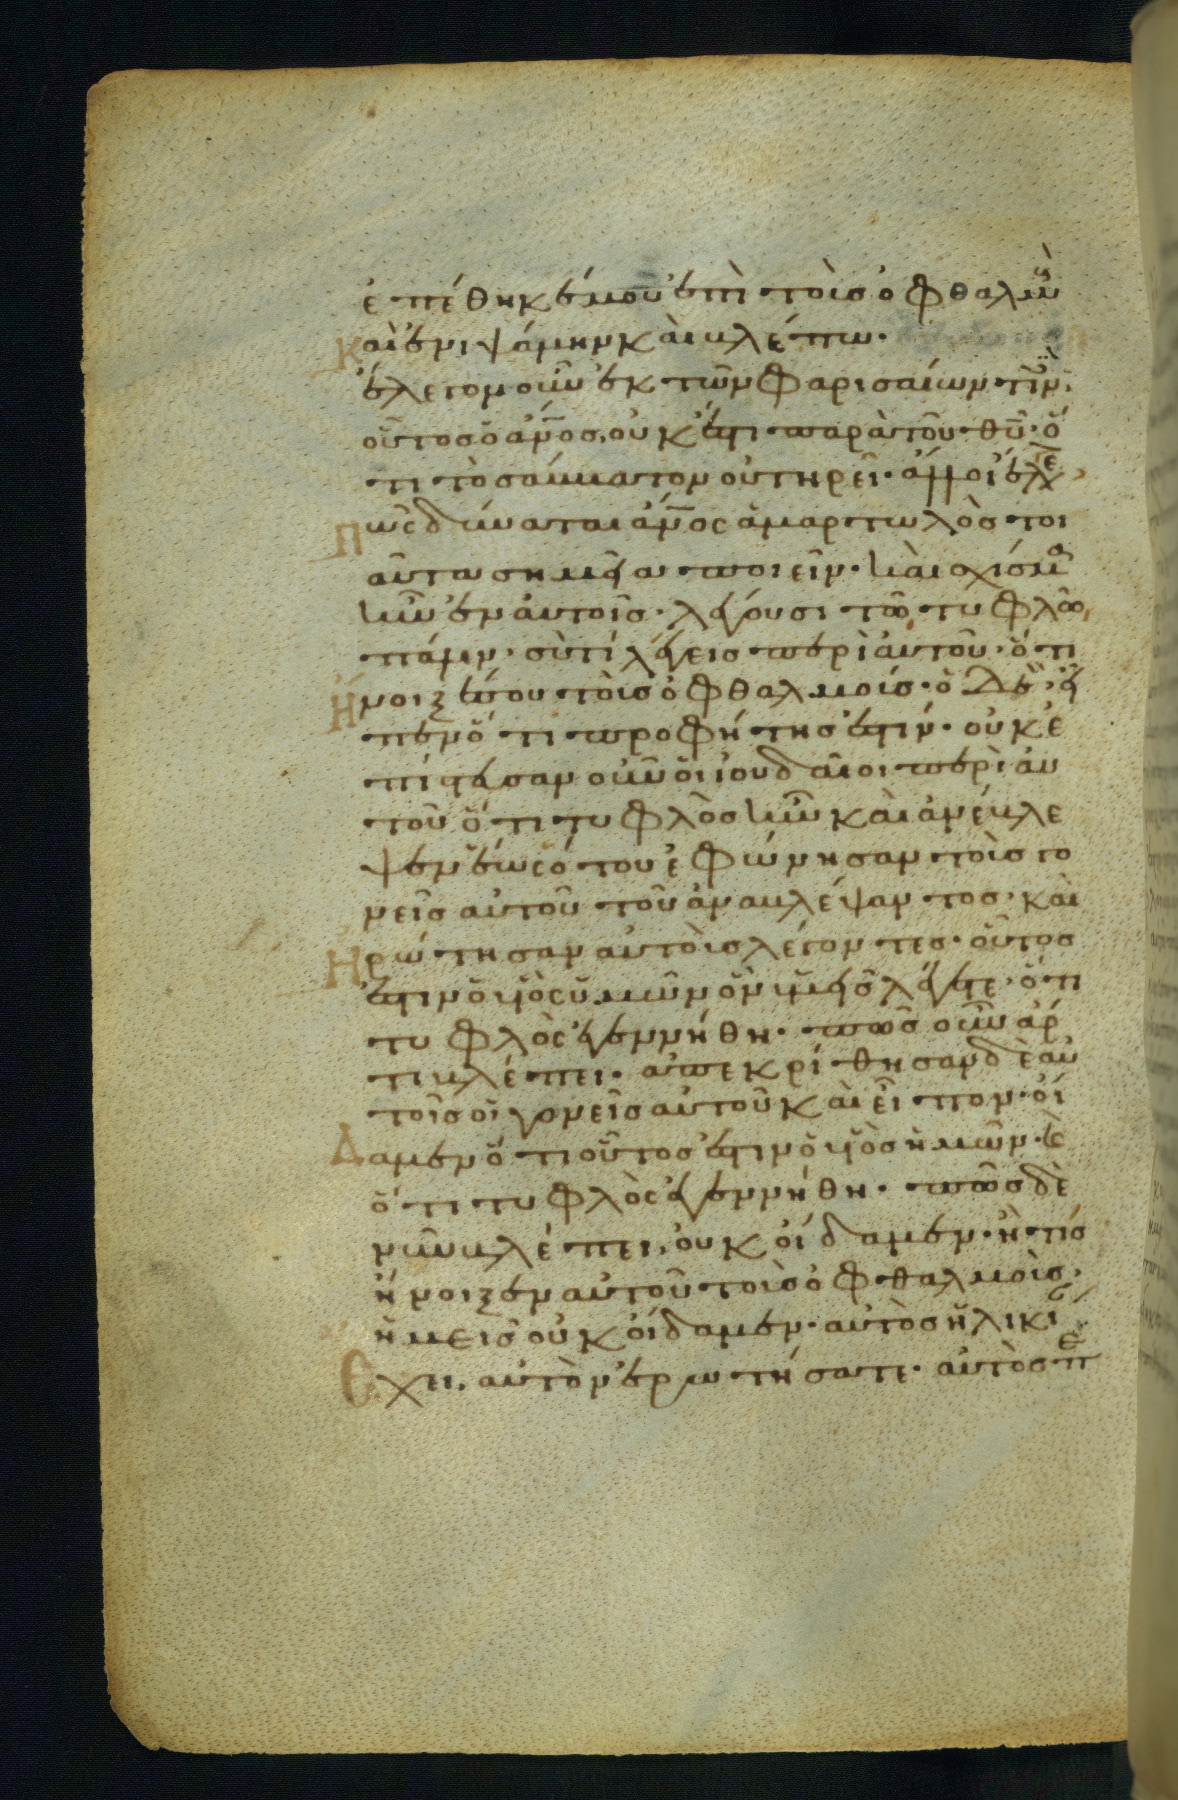 ἐπέθηκέ μου ἐπὶ τοὺς ὀφθαλμοὺ
καὶ ἐνιψάμην καὶ βλέπω·
ἔλεγον οὖν ἐκ τῶν φαρισαίων τινὲς·
οὗτος ὁ ἄνος, οὐκ ἔστι παρὰ τοῦ θῦ· ὅ
τι τὸ σάββατον οὐ τηρεῖ· ἄλλοι ἔλεγ
πῶς δύναται ἄνος ἁμαρτωλὸς τοι
αῦτα σημεῖα ποιεῖν· καὶ σχίσμα
ἦν ἐν αὐτοῖς· λέγουσι τῶ τυφλῶ
πάλιν· σὺ τί λέγεις περὶ αὐτοῦ· ὅτι
ἤνοιξέ σου τοὺς ὀφθαλμούς· ὁ δὲ εἶ
πεν ὅτι προφήτης ἐστίν· οὐκ ἐ
πίστευσαν οὖν οἱ ἰουδαῖοι περὶ αὐ
τοῦ ὅτι τυφλὸς ἦν καὶ ἀνέβλε
ψεν ἕως ὅτου ἐφώνησαν τοὺς γο
νεῖς αὐτοῦ τοῦ ἀναβλέψαντος· καὶ
ἠρώτησαν αὐτοὺς λέγοντες· οὗτος
ἐστιν ὁ υἱὸς ὑμῶν ὃν ὑμεῖς λέγετε· ὅτι
τυφλὸς ἐγεννήθη· πῶς οὖν ἄρ
τι βλέπει· ἀπεκρίθησαν δὲ αὐ
τοῖς οἱ γονεῖς αὐτοῦ καὶ εἶπον· οἴ
δαμεν ὅτι οὗτος ἐστιν ὁ υἱὸς ἡμῶν· καὶ
ὅτι τυφλὸς ἐγεννήθη· πῶς δὲ
νῦν βλέπει, οὐκ οἴδαμεν· ἢ τίς
ἤνοιξεν αὐτοῦ τοὺς ὀφθαλμοὺς·
ἡμεῖς οὐκ οἴδαμεν· αὐτὸς ἡλικί
ἔχει. αὐτὸν ἐρωτήσατε· αὐτὸς πε